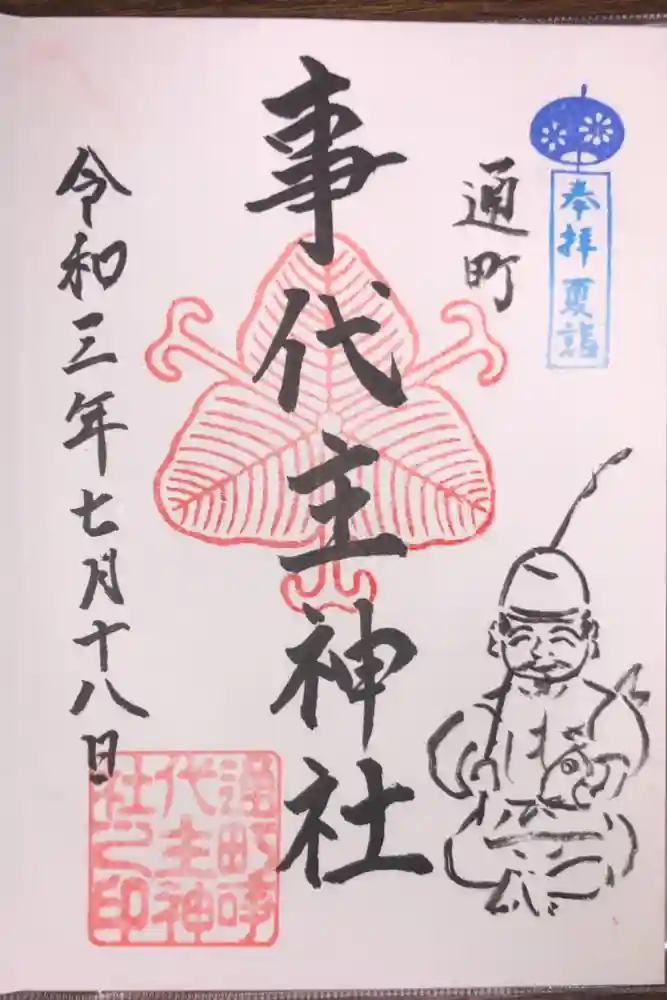 奉拝 夏詣
通町
事代主神社
令和三年七月十八日
通町事
代主神
社之印